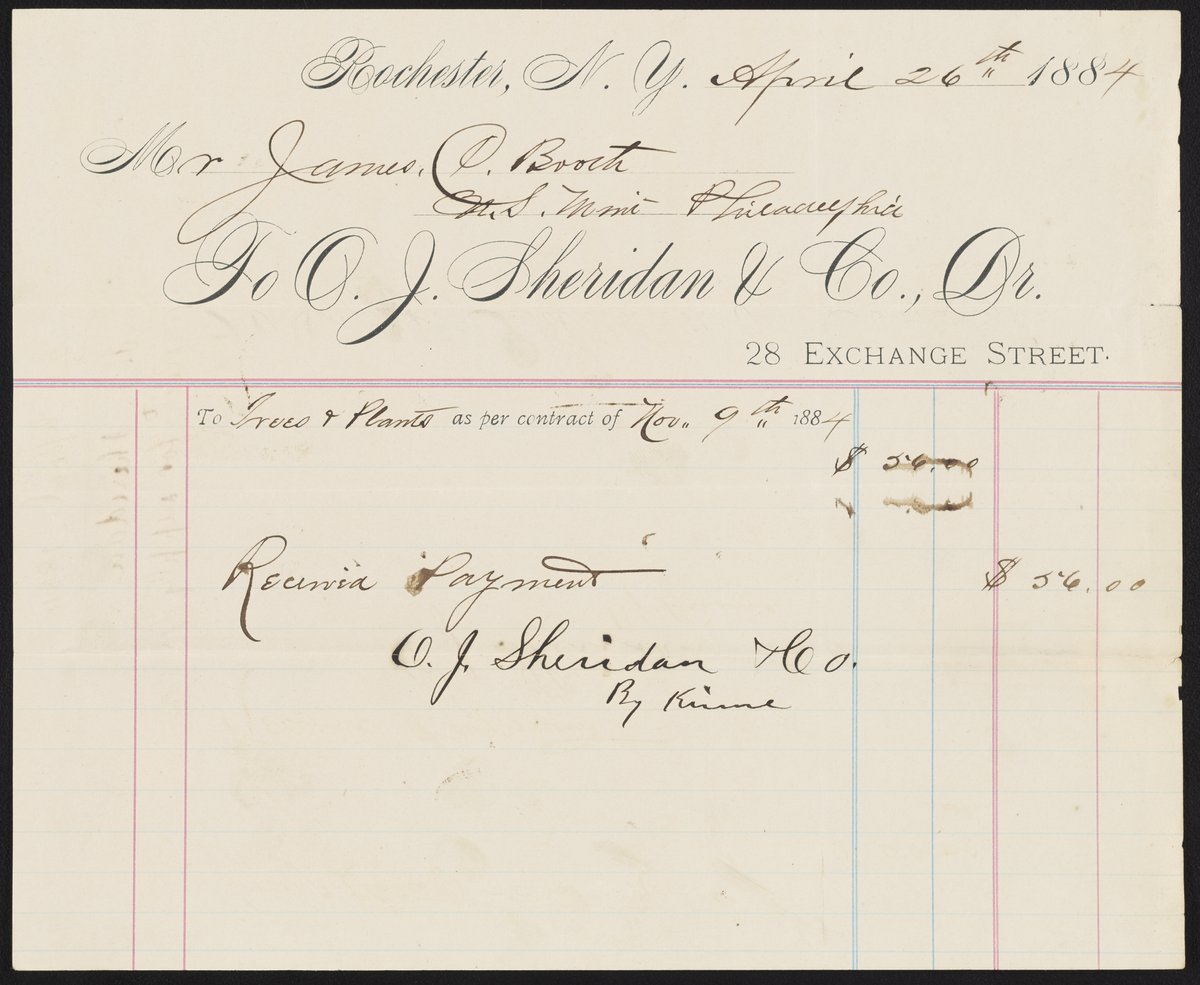 Rochester, N. Y. April 26th 1884
Mr James. C. Booth
U.S. Mint Philadelphia
To O. J. Sheridan & Co., Dr.
28 EXCHANGE STREET.
To Trees & Plants as per contract of Nov. 9th 1884
$ 56.00
Received Payment $ 56.00
O. J. Sheridan & Co.
By